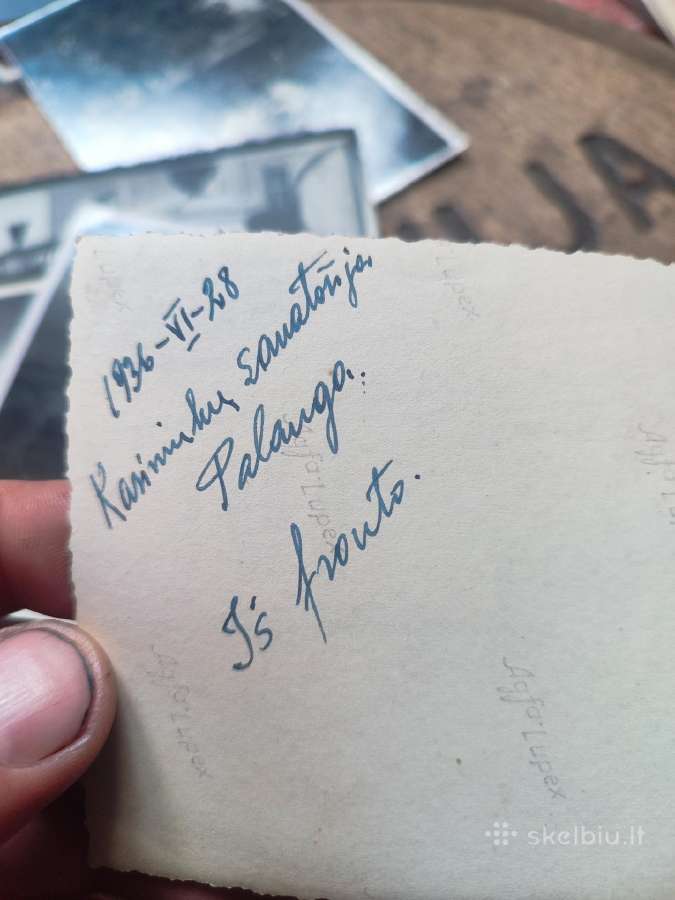 1936-VI-28
Karininkų Sanatorija
Palanga.
Iš fronto.
Agfa-Lupex
Lupex
Agfa-Lupex
Agfa-Lupex
UJA
skelbiu.lt